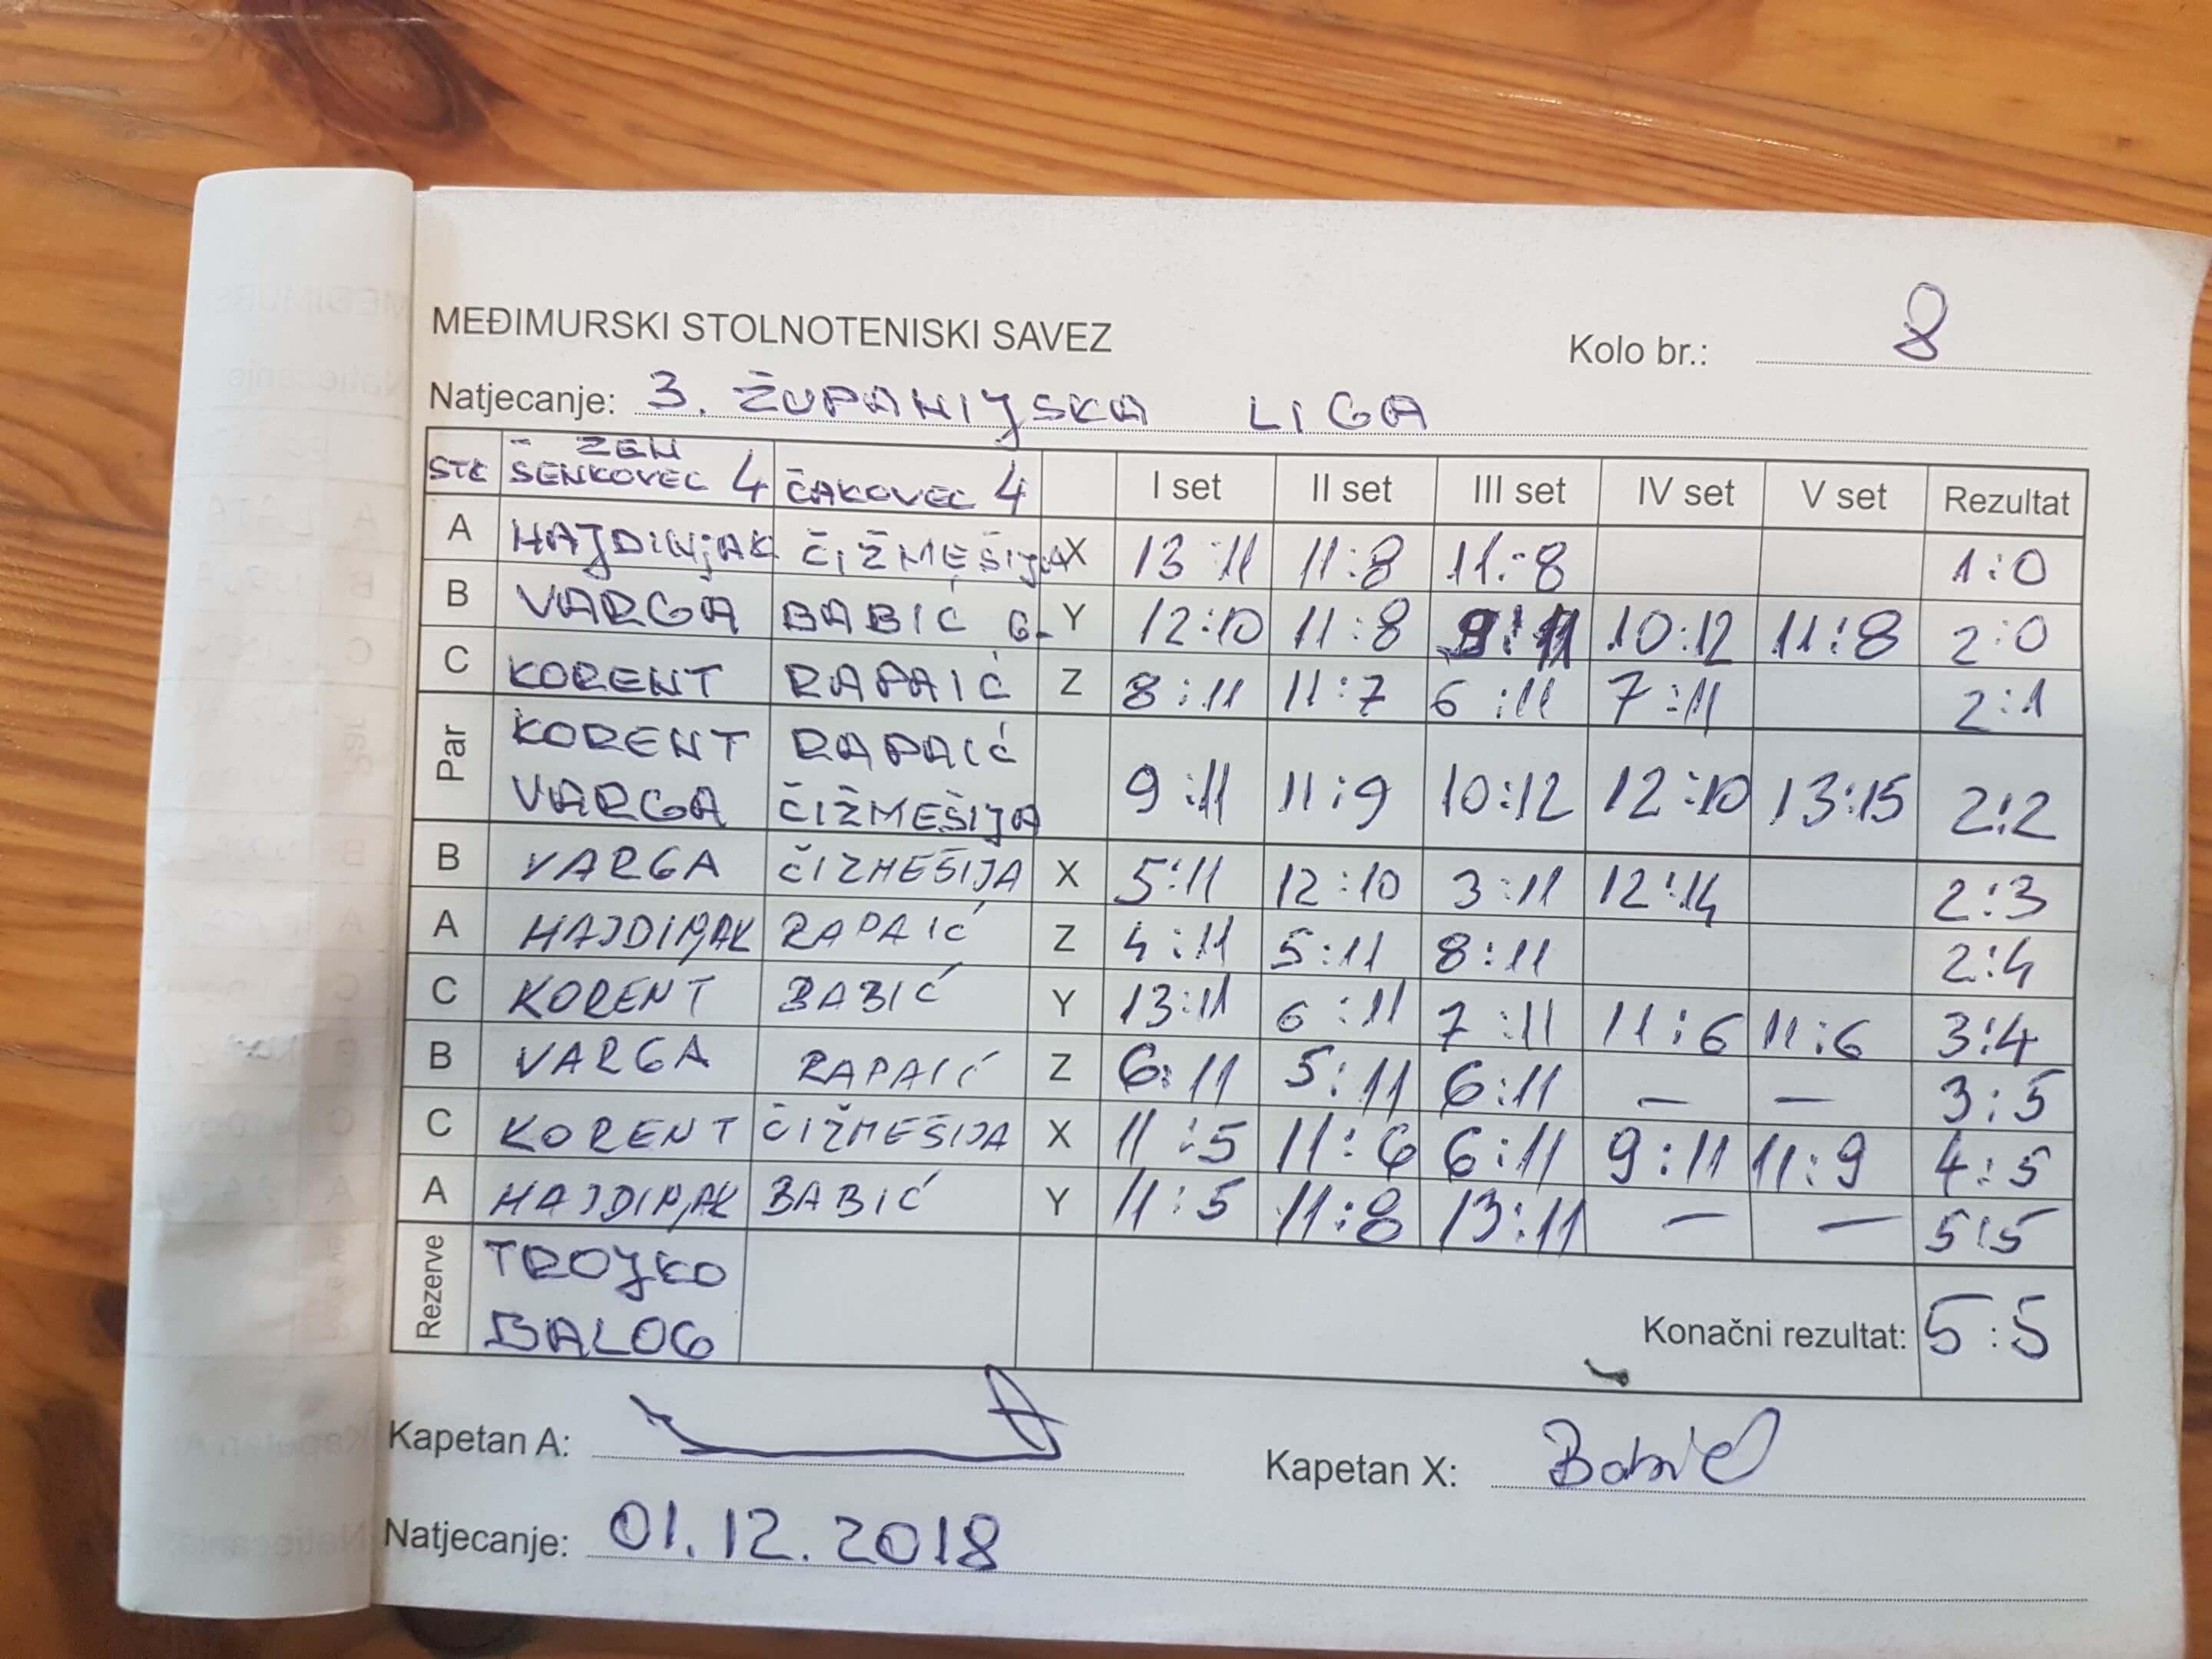 MEĐIMURSKI STOLNOTENISKI SAVEZ
Kolo br.: 8
Natjecanje: 3. ŽUPANIJSKA LIGA
STK ŽEN ŠENKOVEC 4 ČAKOVEC 4 I set II set III set IV set V set Rezultat
A HAJDINJAK ČIŽMEŠIJA X 13:11 11:8 11:8 1:0
B VARGA BABIĆ G. Y 12:10 11:8 9:11 10:12 11:8 2:0
C KORENT RAPAIĆ Z 8:11 11:7 6:11 7:11 2:1
Par KORENT RAPAIĆ
VARGA ČIŽMEŠIJA 9:11 11:9 10:12 12:10 13:15 2:2
B VARGA ČIZMEŠIJA X 5:11 12:10 3:11 12:14 2:3
A HAJDINJAK RAPAIĆ Z 4:11 5:11 8:11 2:4
C KORENT BABIĆ Y 13:11 6:11 7:11 11:6 11:6 3:4
B VARGA RAPAIĆ Z 6:11 5:11 6:11 – – 3:5
C KORENT ČIŽMEŠIJA X 11:5 11:6 6:11 9:11 11:9 4:5
A HAJDINJAK BABIĆ Y 11:5 11:8 13:11 – – 5:5
Rezerve TROJKO
BALOG
Konačni rezultat: 5:5
Kapetan A:
Kapetan X: Babić
Natjecanje: 01.12.2018